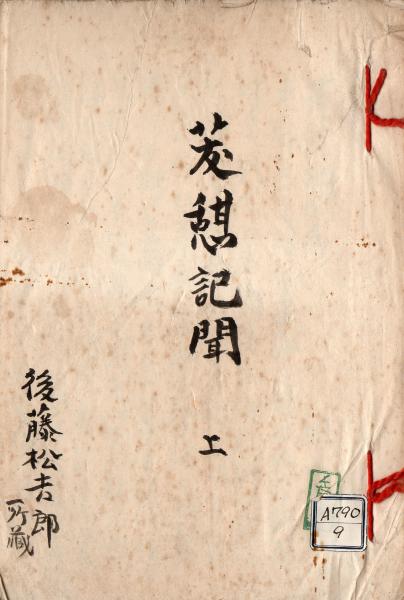 茇憩記聞
上
後藤松吉郎
所蔵
A790
9